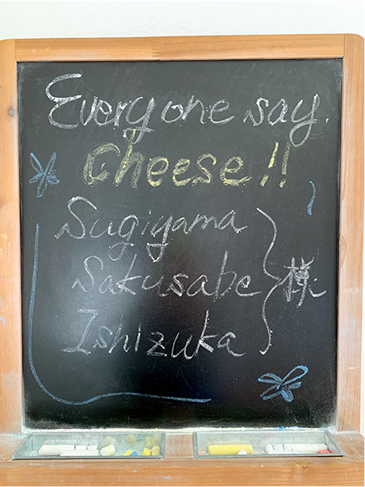 Everyone say.
Cheese!!
Sugiyama
Sakusabe
Ishizuka
様